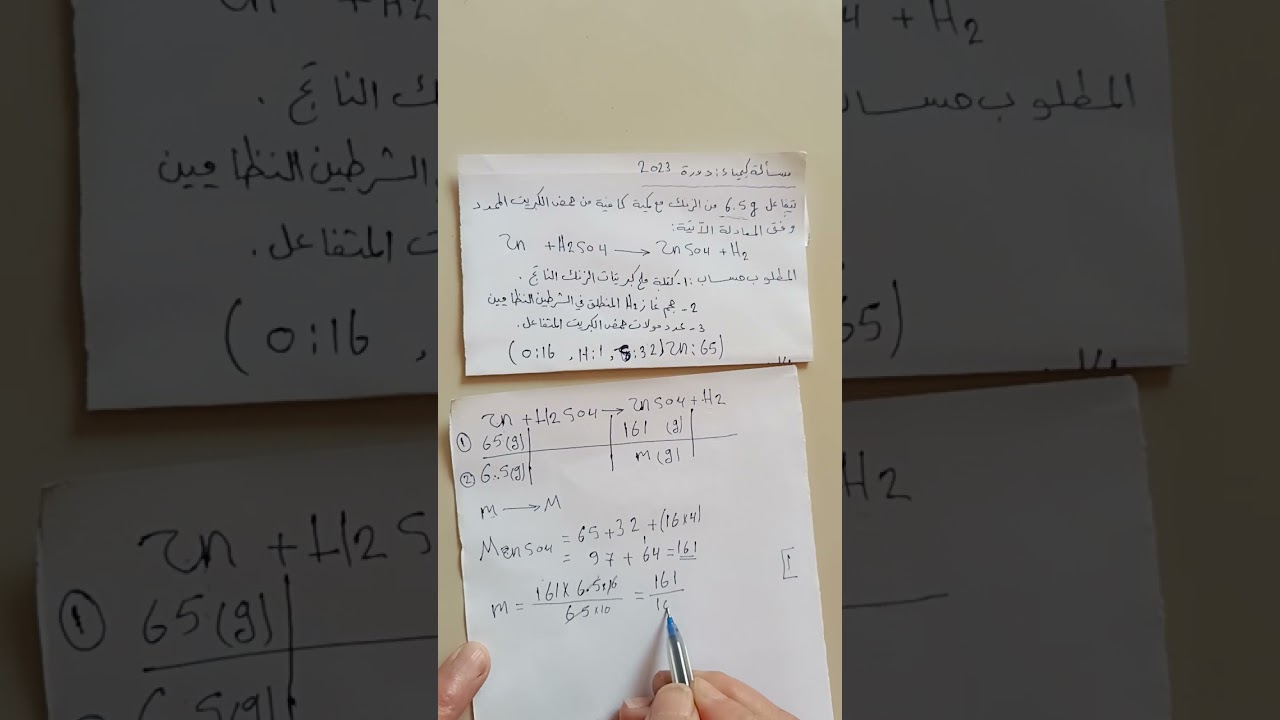 مسألة كيمياء: دورة 2023
يتفاعل 6.5g من الزنك مع كمية كافية من حمض الكبريت الممدد
وفق المعادلة الآتية:
Zn + H2SO4 → ZnSO4 + H2
المطلوب حساب: 1- كتلة ملح كبريتات الزنك الناتج.
2- حجم غاز H2 المنطلق في الشرطين النظاميين
3- عدد مولات حمض الكبريت المتفاعل.
(O:16 , H:1 , S:32 , Zn:65)
Zn + H2SO4 → ZnSO4 + H2
① 65(g) 161 (g)
② 6.5(g) m(g)
m → M
MZnSO4 = 65+32+(16×4)
= 97 + 64 = 161
1
m = 161×6.5×10 / 65×10 = 161 / 10